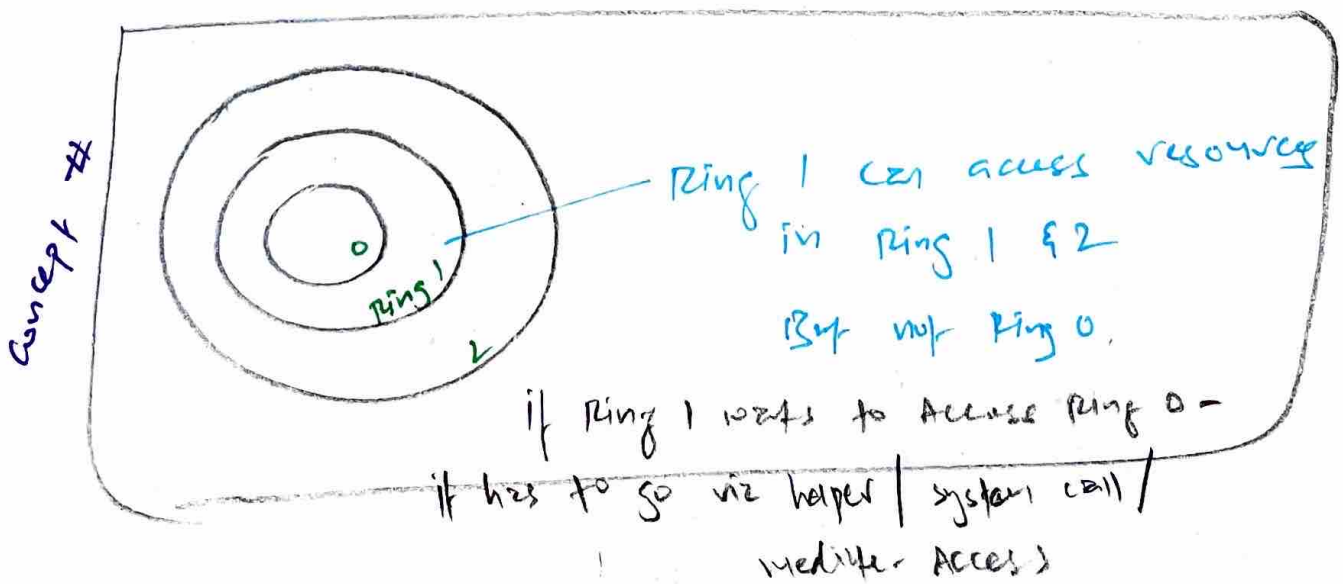 Concept #
0
Ring 1
2
Ring 1 can access resources
in Ring 1 & 2
But not Ring 0.
if Ring 1 wants to Access Ring 0 -
it has to go via helper / system call /
Access